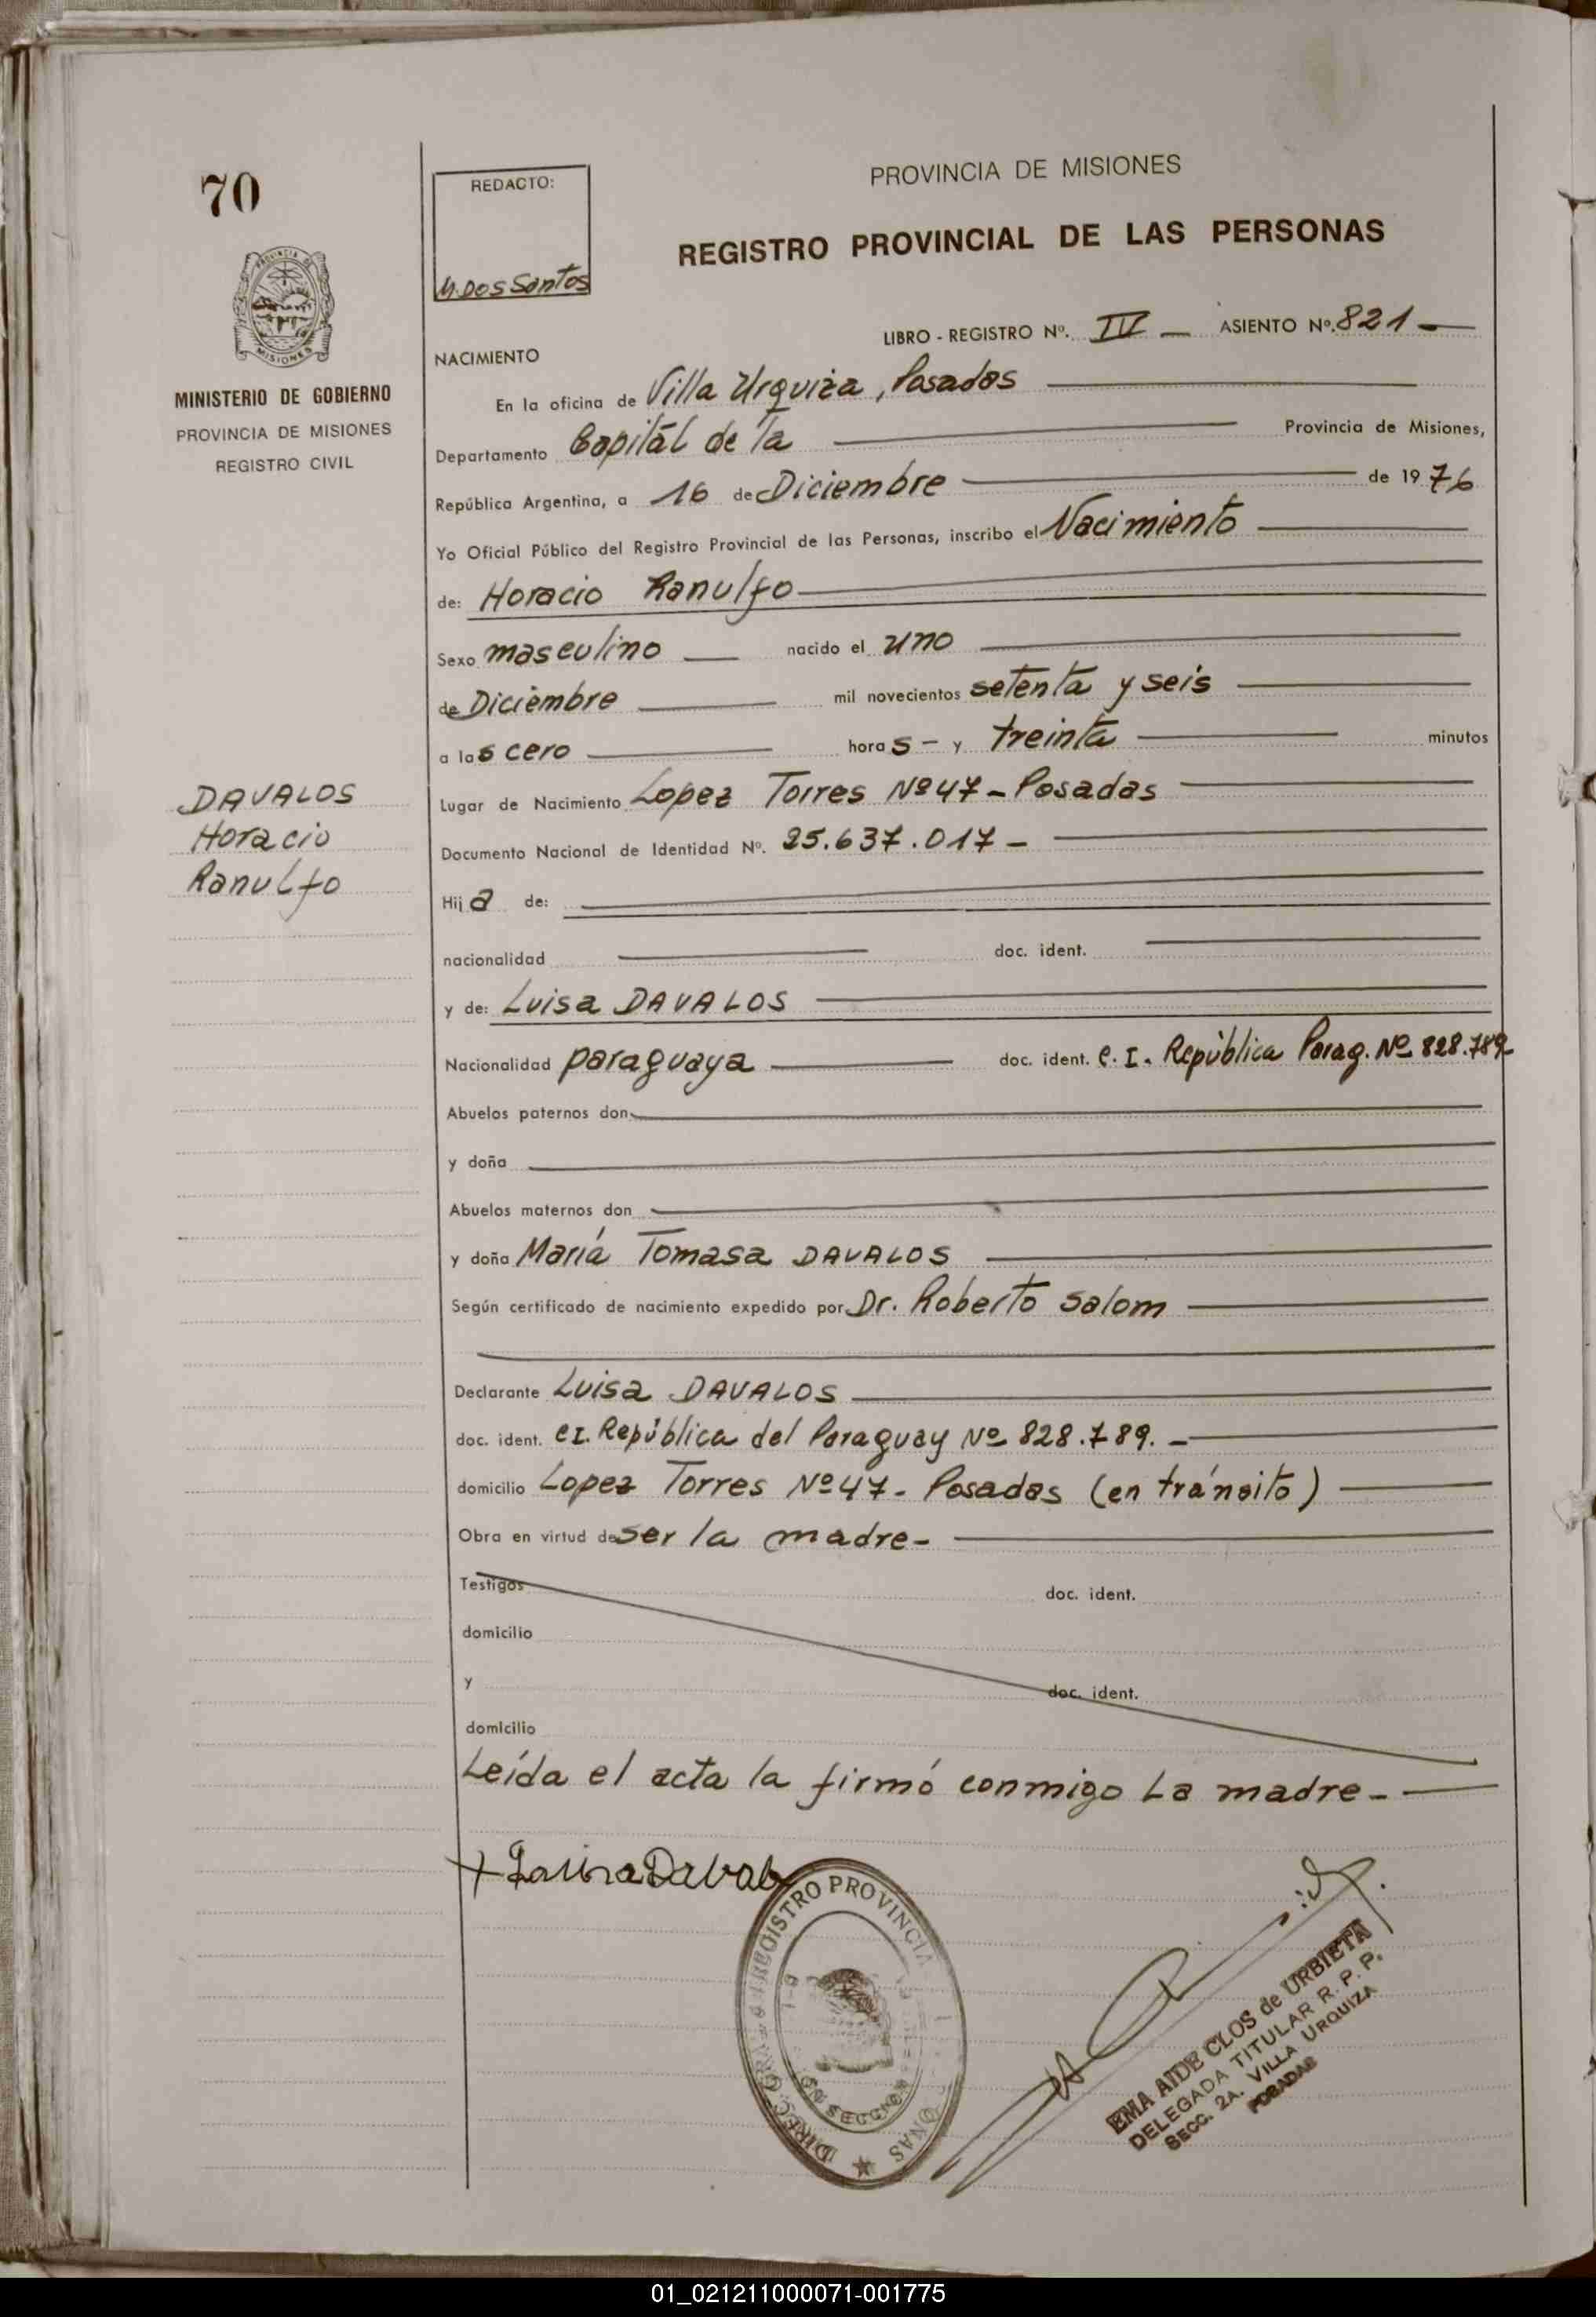 70
PROVINCIA DE MISIONES
MINISTERIO DE GOBIERNO
PROVINCIA DE MISIONES
REGISTRO CIVIL
DAVALOS
Horacio
Ranulfo
REDACTO:
M. Dos Santos
PROVINCIA DE MISIONES
REGISTRO PROVINCIAL DE LAS PERSONAS
LIBRO - REGISTRO Nº. IV — ASIENTO Nº. 821 —
NACIMIENTO
En la oficina de Villa Urquiza, Posadas
Departamento Capitál de la Provincia de Misiones,
República Argentina, a 16 de Diciembre de 1976
Yo Oficial Público del Registro Provincial de las Personas, inscribo el Nacimiento
de: Horacio Ranulfo
Sexo masculino nacido el uno
de Diciembre mil novecientos setenta y seis
a las cero horas - y treinta minutos
Lugar de Nacimiento Lopez Torres Nº 47 - Posadas
Documento Nacional de Identidad Nº. 25.637.017 -
Hija de:
nacionalidad doc. ident.
y de: Luisa DAVALOS
Nacionalidad paraguaya doc. ident. C.I. República Parag. Nº 828.789
Abuelos paternos don
y doña
Abuelos maternos don
y doña María Tomasa DAVALOS
Según certificado de nacimiento expedido por Dr. Roberto Salom
Declarante Luisa DAVALOS
doc. ident. CI. República del Paraguay Nº 828.789. -
domicilio Lopez Torres Nº 47 - Posadas (en tránsito)
Obra en virtud de ser la madre -
Testigos doc. ident.
domicilio
y doc. ident.
domicilio
Leída el acta la firmó conmigo La madre -
REGISTRO PROVINCIA
DIREC. GRAL.
ONAS
SECCION
EMA AIDE CLOS de URBIETA
DELEGADA TITULAR R. P. P.
SECC. 2A. VILLA URQUIZA
POSADAS
01_021211000071-001775